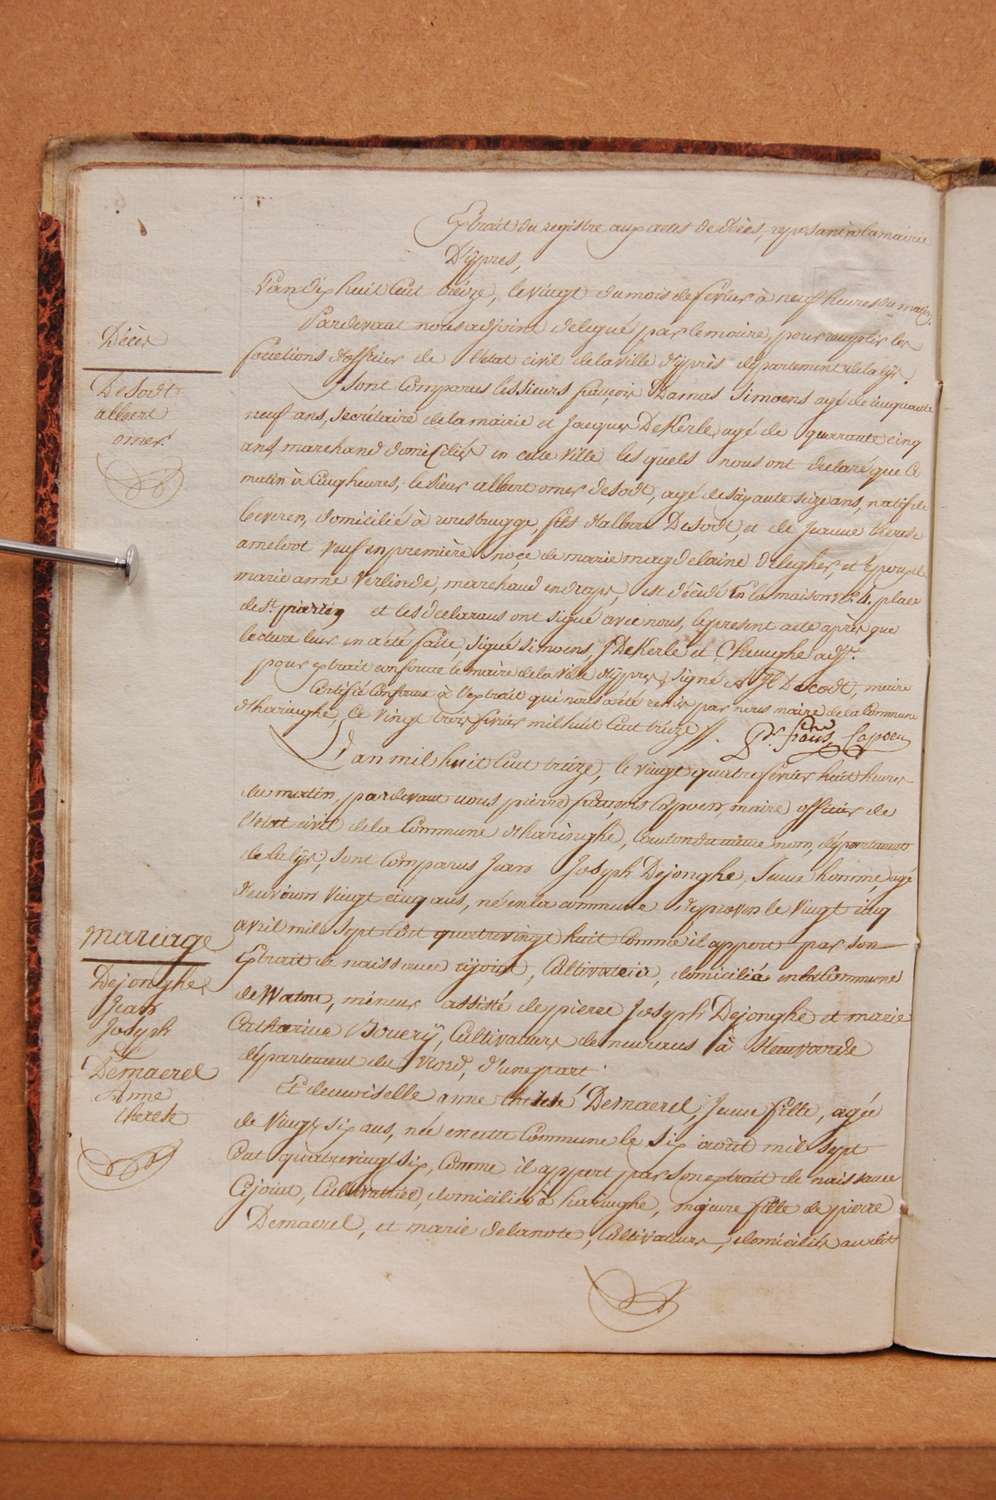 Extrait du registre aux actes de décès, reposant à la mairie
D'ÿpres,
L'an Dix huit Cent treize, le vingt du mois de fevrier à neuf heures du matin,
Pardevant nous adjoint delegué par le maire, pour remplir les
fonctions d'officier de l'état civil de la ville d'ÿprès departement de la lÿs.
Sont Comparus les sieurs françois Damas Simoens agé de Cinquante
neuf ans, Secrétaire de la mairie et Jacques DeKerle agé de quarante cinq
ans marchand domiciliés en cette ville les quels nous ont declaré que ce
matin à Cinq heures, le sieur albert omer desodt, agé de soixante seize ans, natif de
beveren, domicilié à rousbrugge, fils d'albert Desodt, et de Jeanne therese
ameloot veuf en première noçe de marie magdelaine delegher et epoux de
marie anne verlinde, marchand en draps, est décédé en la maison n.° 4. place
de St. martin et les declarans ont signé avec nous, le present acte après que
lecture leur en a été faite, signé Simoens, J DeKerle et adjt.
pour extrait conforme le maire de la ville d'ÿpres, signé Decodt, maire
Certifié Conforme à l'extrait qui nous a été remis par nous maire de la Commune
d'haringhe, le vingt trois fevrier mil huit Cent treize //. Pre. frans. Capoen
L'an mil huit Cent treize, le vingt quatre fevrier huit heures
du matin, pardevant nous pierre françois Capoen, maire officier de
l'état civil de la Commune d'haringhe, Canton du même nom, département
de la lÿs, Sont Comparus Jean Joseph Dejonghe, Jeune homme, agé
d'environ vingt cinq ans, né en la commune le vingt cinq
avril mil Sept Cent quatrevingt huit Comme il appert par son
Extrait de naissance cijoint, Cultivateur, domicilié en la Commune
de Watou, mineur assisté de pierre Joseph Dejonghe et marie
Catharine Bouerÿ, Cultivateurs demeurans à
département du Nord, d'une part.
Et demoiselle anne therese Demaerel, Jeune fille, agée
de vingt six ans, née en cette Commune le six août mil sept
Cent quatrevingt six, Comme il appert par son extrait de naissance
Cijoint, Cultivatrice, domiciliée à haringhe, majeure fille de pierre
Demaerel, et marie delanote, Cultivateurs, domiciliés au dit
Décès
Desodt
albert
omer
mariage
Dejonghe
Jean
Joseph
&
Demaerel
Anne
therese